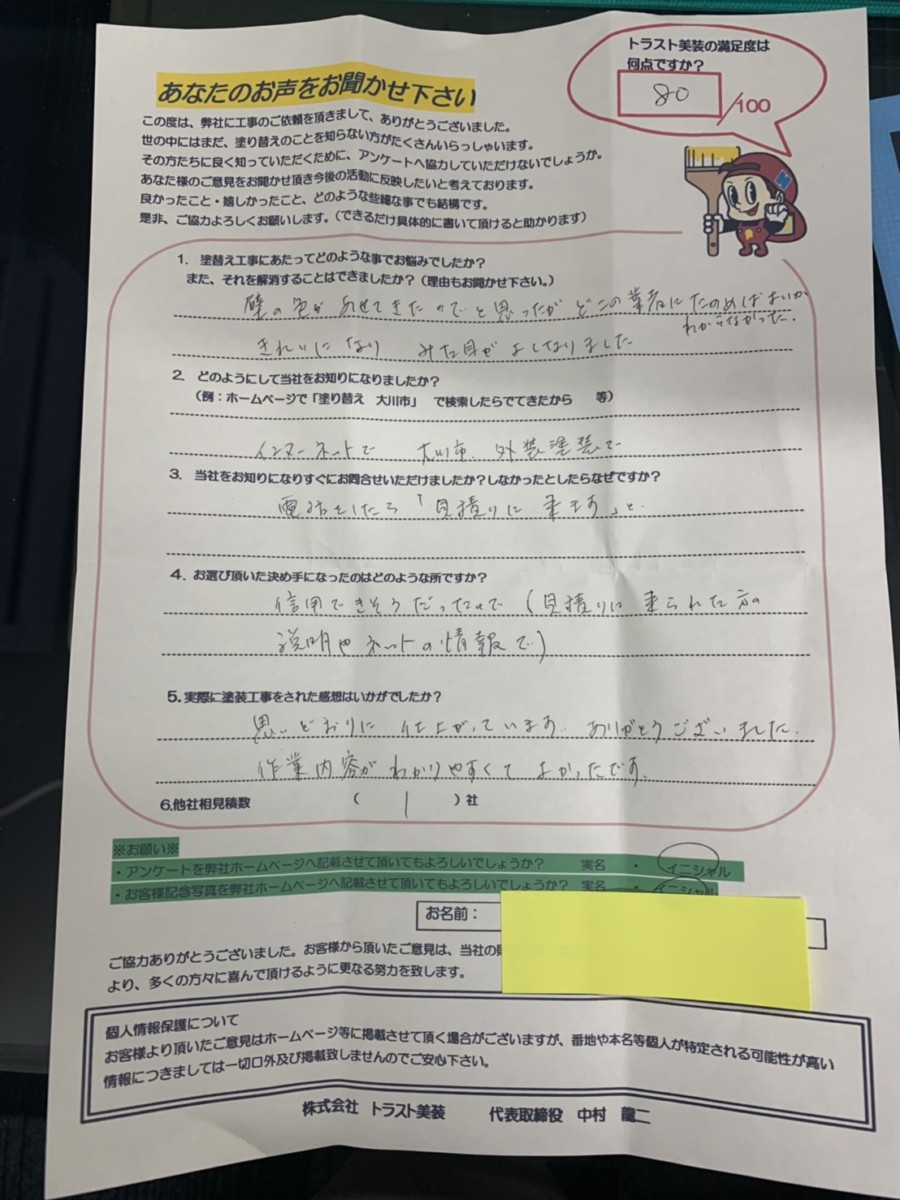 トラスト美装の満足度は
何点ですか?
80 /100
あなたのお声をお聞かせ下さい
この度は、弊社に工事のご依頼を頂きまして、ありがとうございました。
世の中にはまだ、塗り替えのことを知らない方がたくさんいらっしゃいます。
その方たちに良く知っていただくために、アンケートへ協力していただけないでしょうか。
あなた様のご意見をお聞かせ頂き今後の活動に反映したいと考えております。
良かったこと・嬉しかったこと、どのような些細な事でも結構です。
是非、ご協力よろしくお願いします。(できるだけ具体的に書いて頂けると助かります)
1. 塗替え工事にあたってどのような事でお悩みでしたか?
また、それを解消することはできましたか?(理由もお聞かせ下さい。)
壁の色があせてきたのでと思ったが どこの業者にたのめばよいか
わからなかった.
きれいになり みた目がよくなりました
2. どのようにして当社をお知りになりましたか?
(例:ホームページで「塗り替え 大川市」 で検索したらでてきたから 等)
インターネットで 大川市. 外装塗装で
3. 当社をお知りになりすぐにお問合せいただけましたか?しなかったとしたらなぜですか?
電話をしたら「見積りに来ます」と.
4. お選び頂いた決め手になったのはどのような所ですか?
信用できそうだったので (見積りに来られた方の
説明やネットの情報で)
5. 実際に塗装工事をされた感想はいかがでしたか?
思いどおりに仕上がっています. ありがとうございました.
作業内容がわかりやすくてよかったです.
6.他社相見積数 ( 1 )社
※お願い※
・アンケートを弊社ホームページへ記載させて頂いてもよろしいでしょうか? 実名 ・ イニシャル
・お客様記念写真を弊社ホームページへ記載させて頂いてもよろしいでしょうか? 実名 ・ イニシャル
お名前:
ご協力ありがとうございました。お客様から頂いたご意見は、当社の
より、多くの方々に喜んで頂けるように更なる努力を致します。
個人情報保護について
お客様より頂いたご意見はホームページ等に掲載させて頂く場合がございますが、番地や本名等個人が特定される可能性が高い
情報につきましては一切口外及び掲載致しませんのでご安心下さい。
株式会社 トラスト美装 代表取締役 中村 龍二